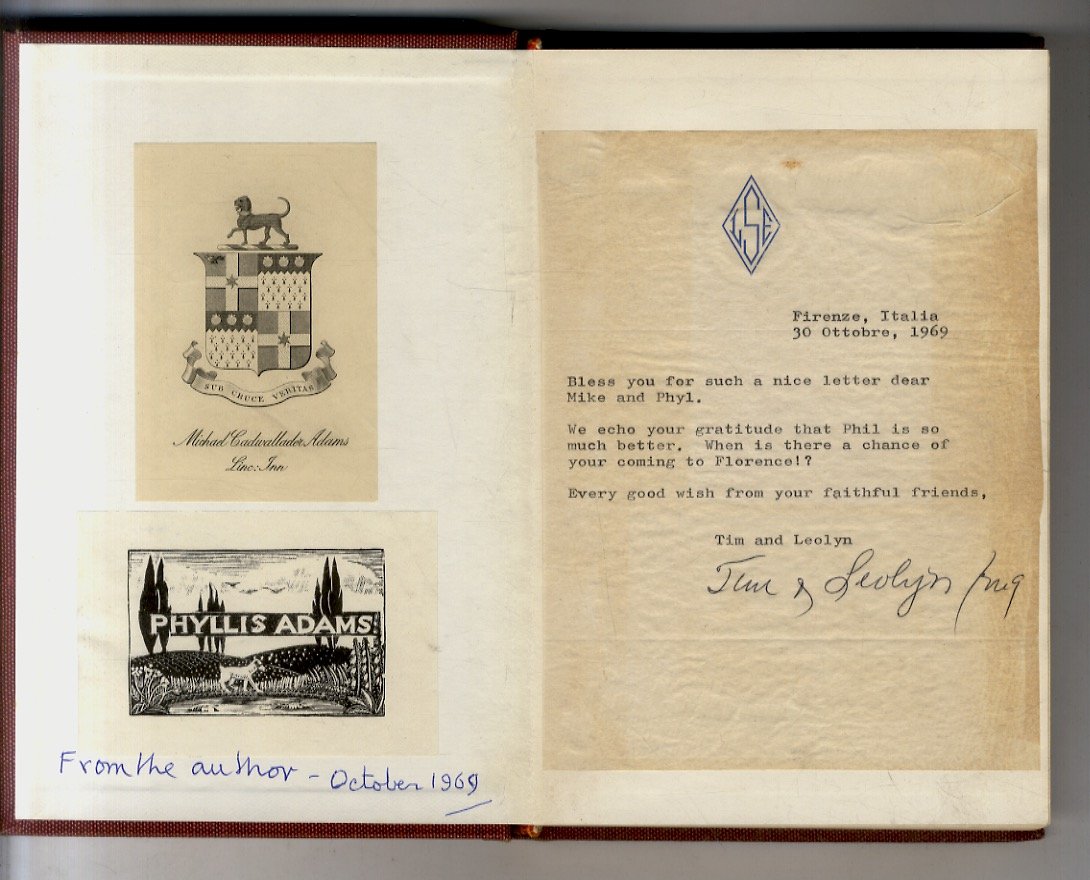 SUB CRUCE VERITAS
Michael Cadwallader Adams
Linc: Inn
PHYLLIS ADAMS
From the author - October 1969
LSE
Firenze, Italia
30 Ottobre, 1969
Bless you for such a nice letter dear
Mike and Phyl.
We echo your gratitude that Phil is so
much better. When is there a chance of
your coming to Florence!?
Every good wish from your faithful friends,
Tim and Leolyn
Tim & Leolyn